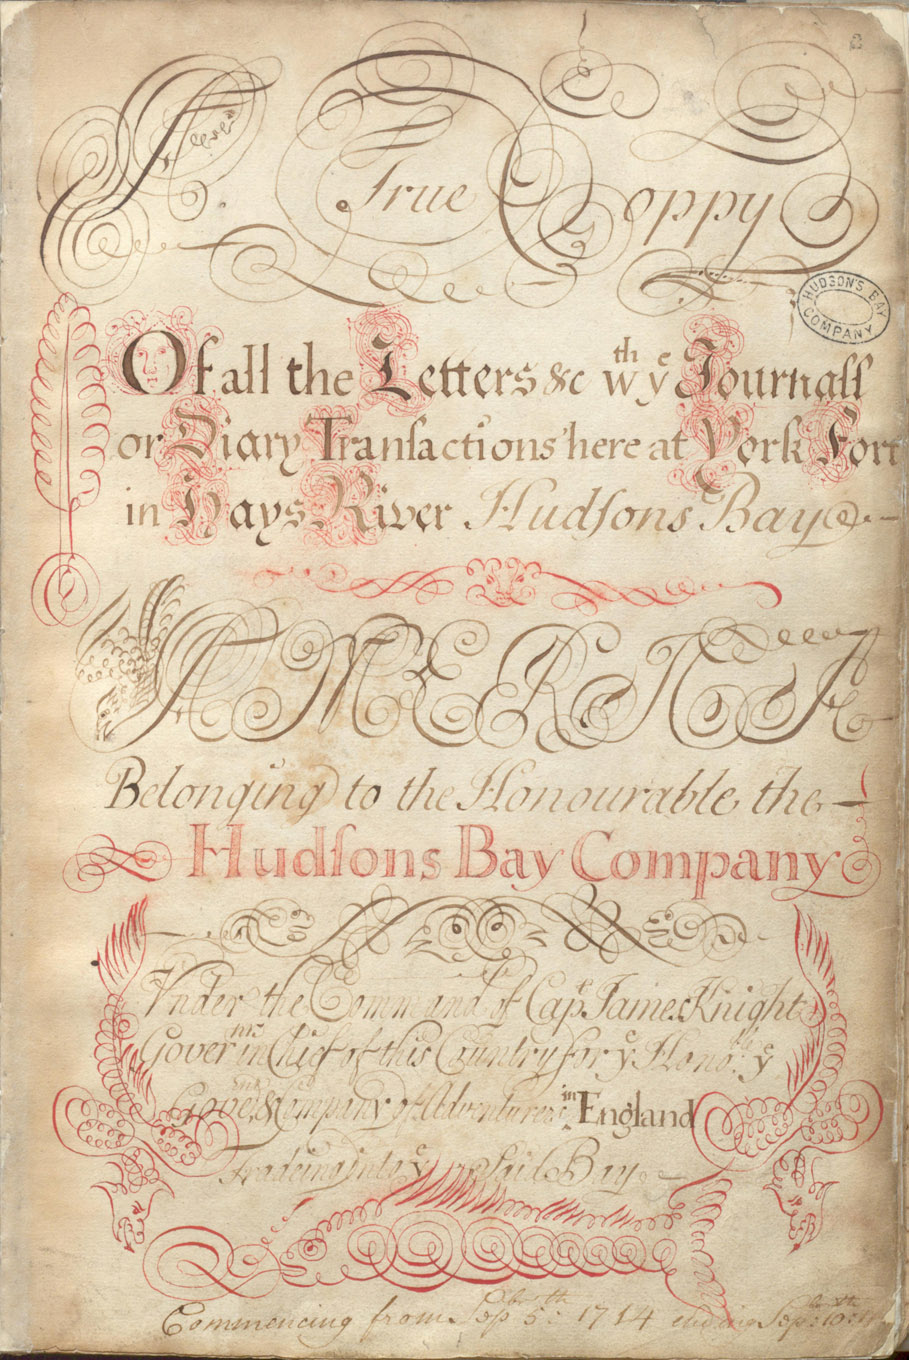 A True Coppy
HUDSON'S BAY
COMPANY
Of all the Letters &c wth ye Journall
or Diary Transactions here at York Fort
in Hays River Hudsons Bay
AMERICA
Belonging to the Honourable the
Hudsons Bay Company
Vnder the Command of Capt James Knight
Govern:r in Chief of this Countrey for ye Hono:ble ye
Gove: & Company of Adventurers in England
tradeing into ye Said Bay
Commencing from Sepbr 5th: 1714 ending Sepbr: 10th: